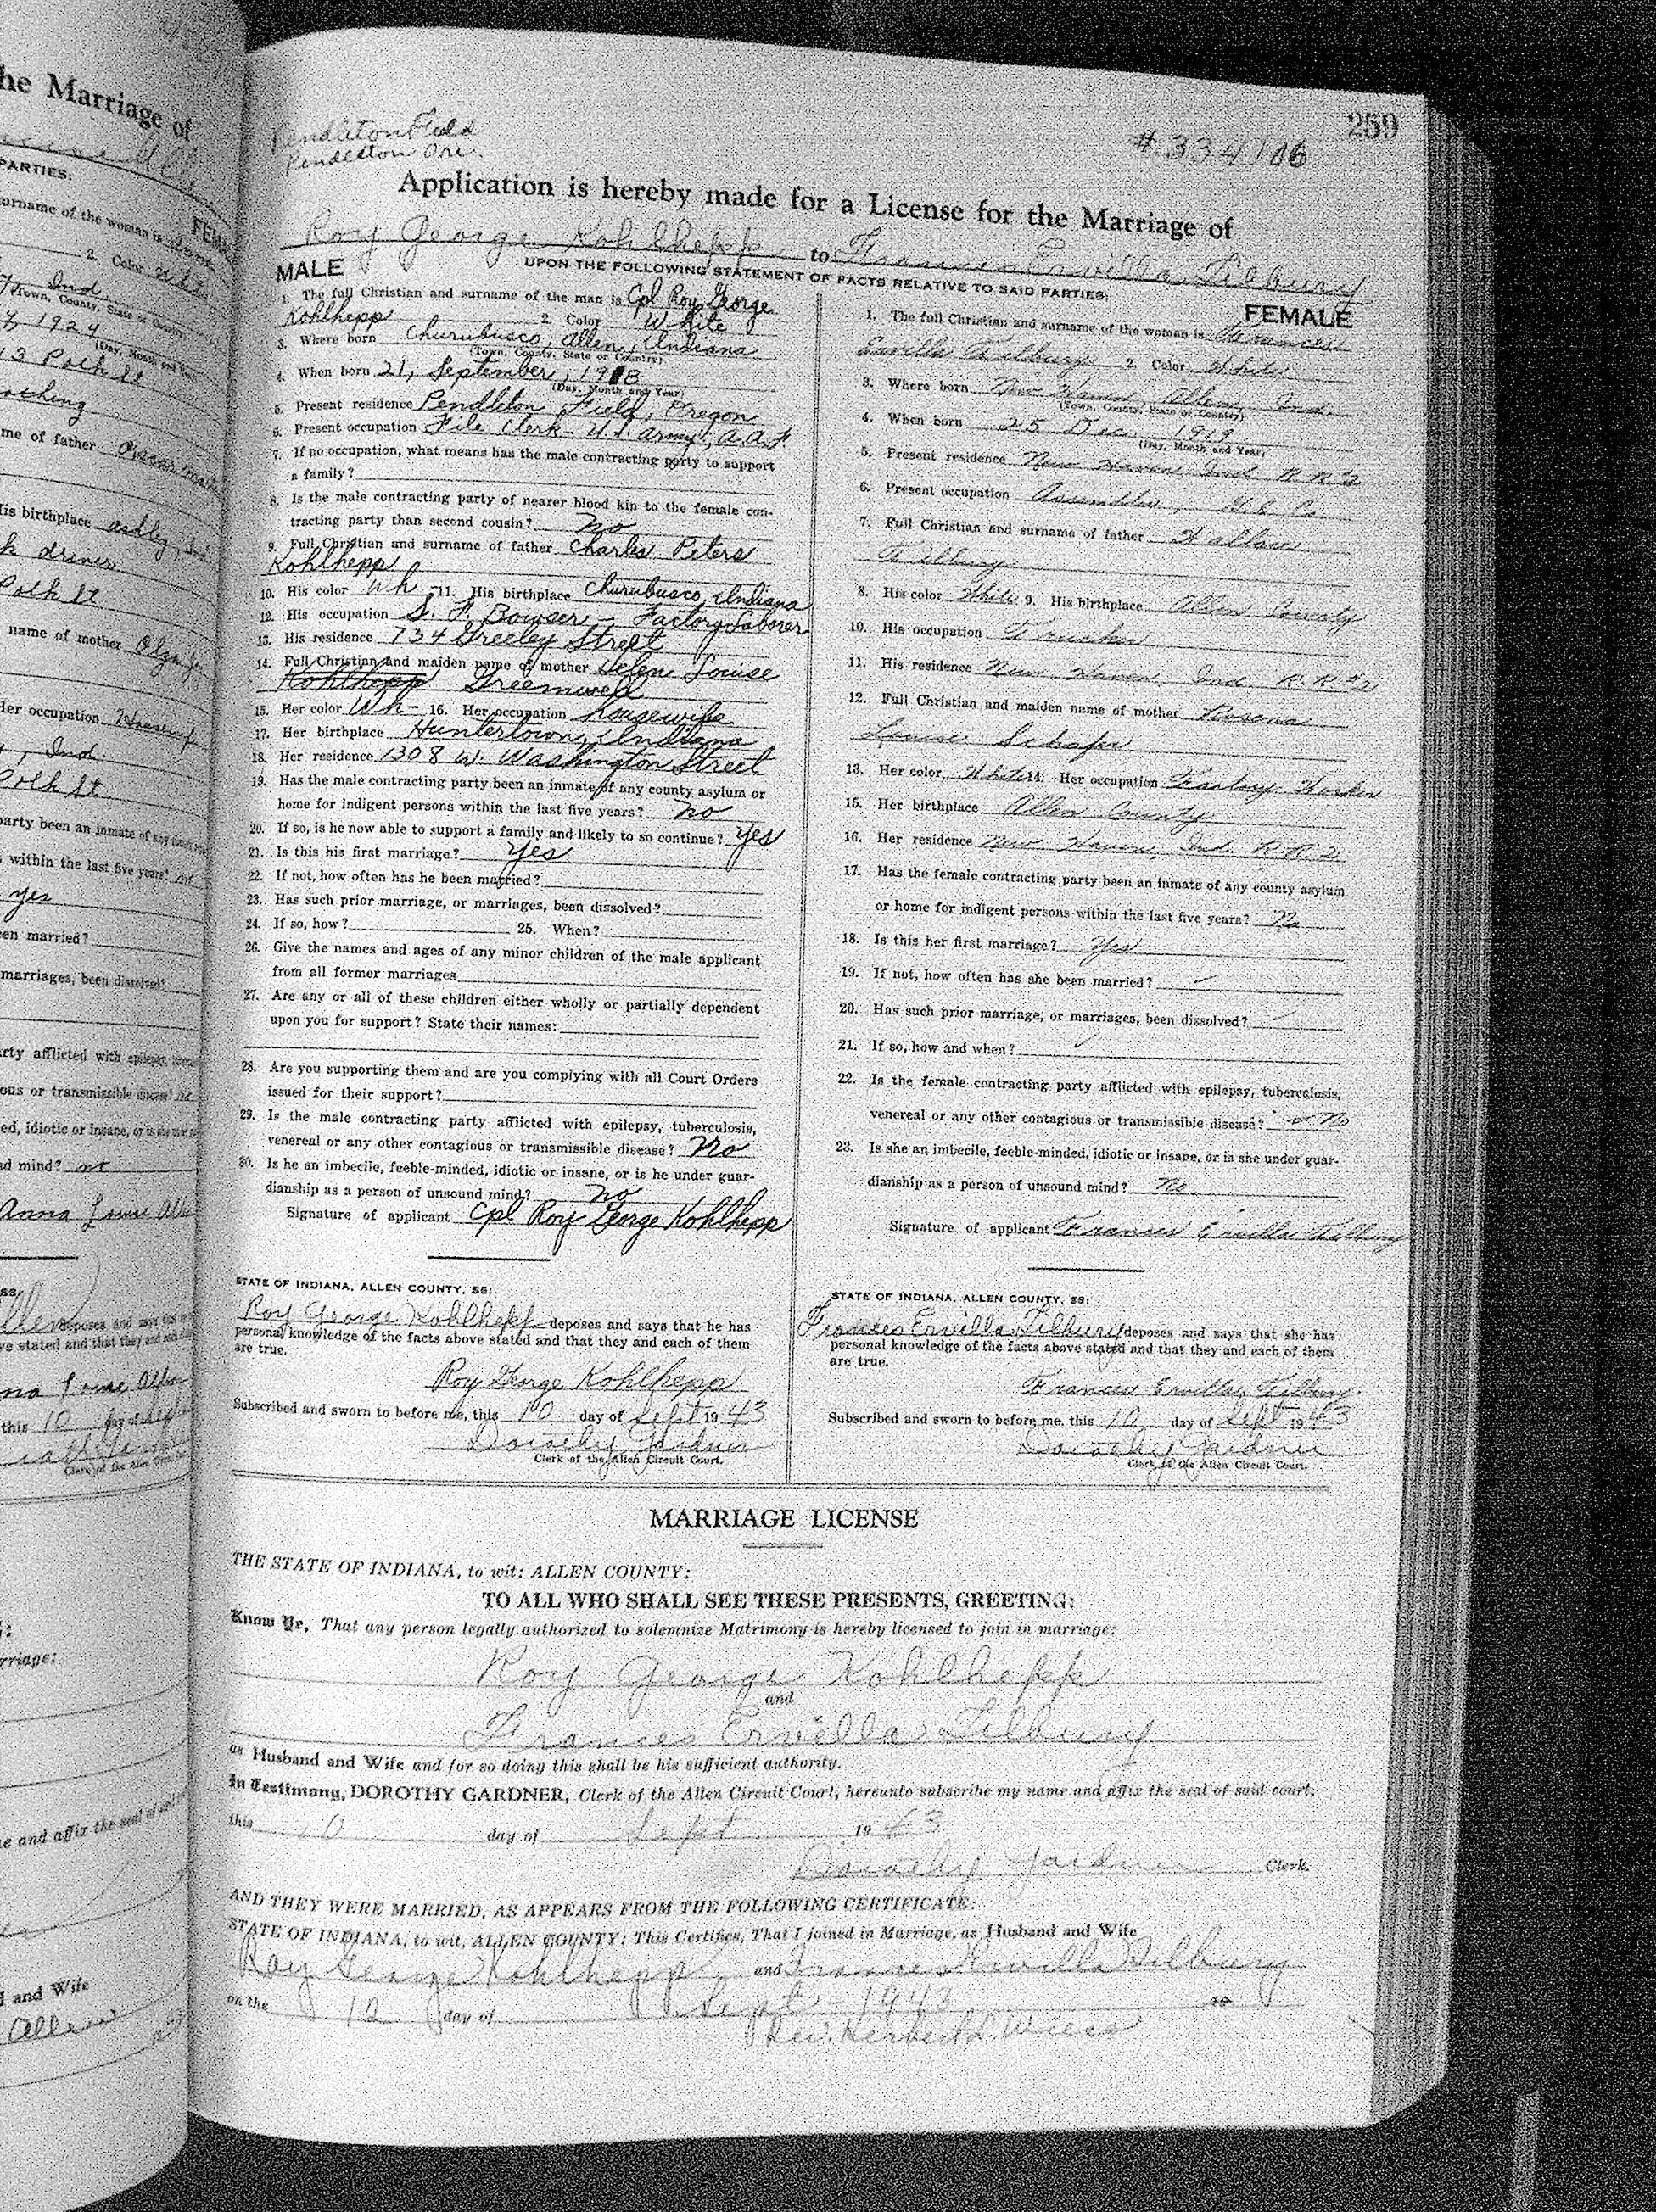 he Marriage of
PARTIES.
FEMA
surname of the woman is
2. Color White
Ind.
(Town, County, State or Country)
1924
(Day, Month and Year)
3 Polk St
me of father Oscar
His birthplace Ashley, Ind
Polk St
name of mother
Her occupation Housewife
, Ind.
Polk St.
party been an inmate of any
within the last five years? no
yes
en married?
marriages, been dissolved?
arty afflicted with epilepsy,
ous or transmissible disease? no
ed, idiotic or insane, or is she
nd mind? no
Anna Louise All
deposes and says that
ve stated and that they and each
this 10 day of Sept
Clerk of the Allen Circuit Court
rriage:
e and affix the seal of said
d and Wife
Allen
259
Pendleton Field
Pendleton Ore.
# 334106
Application is hereby made for a License for the Marriage of
Roy George Kohlhepp to Frances Ervilla Tilbury
UPON THE FOLLOWING STATEMENT OF FACTS RELATIVE TO SAID PARTIES:
MALE
1. The full Christian and surname of the man is Cpl Roy George
Kohlhepp 2. Color White
3. Where born Churubusco, Allen, Indiana
(Town, County, State or Country)
4. When born 21, September, 1918
(Day, Month and Year)
5. Present residence Pendleton Field, Oregon
6. Present occupation File Clerk - U.S. Army, A.A.F.
7. If no occupation, what means has the male contracting party to support
a family?
8. Is the male contracting party of nearer blood kin to the female con-
tracting party than second cousin? No
9. Full Christian and surname of father Charles Peters
Kohlhepp
10. His color Wh - 11. His birthplace Churubusco, Indiana
12. His occupation S. F. Bowser - Factory Laborer
13. His residence 734 Greeley Street
14. Full Christian and maiden name of mother Helen Louise
Kohlhepp Greenwell
15. Her color Wh - 16. Her occupation housewife
17. Her birthplace Huntertown, Indiana
18. Her residence 1308 W. Washington Street
19. Has the male contracting party been an inmate of any county asylum or
home for indigent persons within the last five years? no
20. If so, is he now able to support a family and likely to so continue? Yes
21. Is this his first marriage? Yes
22. If not, how often has he been married?
23. Has such prior marriage, or marriages, been dissolved?
24. If so, how? 25. When?
26. Give the names and ages of any minor children of the male applicant
from all former marriages
27. Are any or all of these children either wholly or partially dependent
upon you for support? State their names:
28. Are you supporting them and are you complying with all Court Orders
issued for their support?
29. Is the male contracting party afflicted with epilepsy, tuberculosis,
venereal or any other contagious or transmissible disease? No
30. Is he an imbecile, feeble-minded, idiotic or insane, or is he under guar-
dianship as a person of unsound mind? no
Signature of applicant Cpl Roy George Kohlhepp
STATE OF INDIANA, ALLEN COUNTY, SS:
Roy George Kohlhepp deposes and says that he has
personal knowledge of the facts above stated and that they and each of them
are true.
Roy George Kohlhepp
Subscribed and sworn to before me, this 10 day of Sept 1943
Dorothy Gardner
Clerk of the Allen Circuit Court.
FEMALE
1. The full Christian and surname of the woman is Frances
Ervilla Tilbury 2. Color White
3. Where born New Haven, Allen, Ind.
(Town, County, State or Country)
4. When born 25 Dec. 1919
(Day, Month and Year)
5. Present residence New Haven, Ind R R #2
6. Present occupation Assembler, G.E. Co.
7. Full Christian and surname of father Wallace
Tilbury
8. His color White 9. His birthplace Allen County
10. His occupation Trucker
11. His residence New Haven Ind R.R.#2
12. Full Christian and maiden name of mother Rosena
Louise Schafer
13. Her color White 14. Her occupation Factory Worker
15. Her birthplace Allen County
16. Her residence New Haven, Ind. R.R. 2
17. Has the female contracting party been an inmate of any county asylum
or home for indigent persons within the last five years? No
18. Is this her first marriage? Yes
19. If not, how often has she been married?
20. Has such prior marriage, or marriages, been dissolved?
21. If so, how and when?
22. Is the female contracting party afflicted with epilepsy, tuberculosis,
venereal or any other contagious or transmissible disease? No
23. Is she an imbecile, feeble-minded, idiotic or insane, or is she under guar-
dianship as a person of unsound mind? No
Signature of applicant Frances Ervilla Tilbury
STATE OF INDIANA, ALLEN COUNTY, SS:
Frances Ervilla Tilbury deposes and says that she has
personal knowledge of the facts above stated and that they and each of them
are true.
Frances Ervilla Tilbury
Subscribed and sworn to before me, this 10 day of Sept 1943
Dorothy Gardner
Clerk of the Allen Circuit Court.
MARRIAGE LICENSE
THE STATE OF INDIANA, to wit: ALLEN COUNTY:
TO ALL WHO SHALL SEE THESE PRESENTS, GREETING:
Know Ye, That any person legally authorized to solemnize Matrimony is hereby licensed to join in marriage:
Roy George Kohlhepp
and
Frances Ervilla Tilbury
as Husband and Wife and for so doing this shall be his sufficient authority.
In Testimony, DOROTHY GARDNER, Clerk of the Allen Circuit Court, hereunto subscribe my name and affix the seal of said court,
this 10 day of Sept 1943
Dorothy Gardner Clerk.
AND THEY WERE MARRIED, AS APPEARS FROM THE FOLLOWING CERTIFICATE:
STATE OF INDIANA, to wit, ALLEN COUNTY: This Certifies, That I joined in Marriage, as Husband and Wife
Roy George Kohlhepp and Frances Ervilla Tilbury
on the 12 day of Sept - 1943
Rev. Herbert L. Wiese